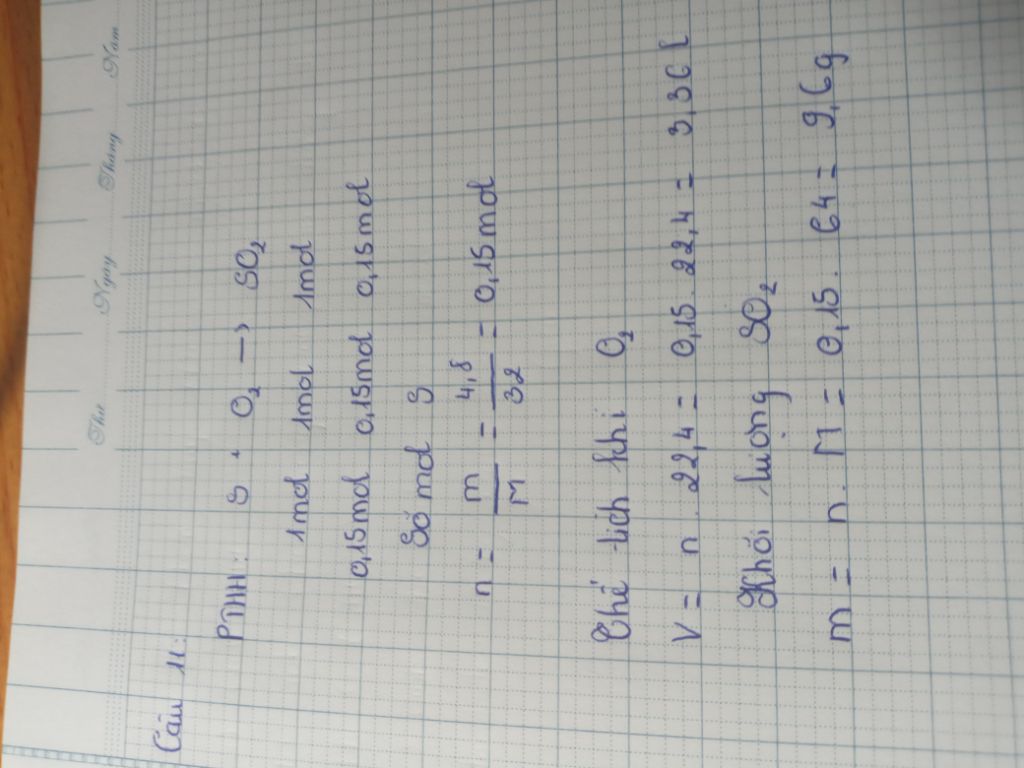 Thứ Ngày Tháng Năm
Câu 11:
PTHH: S + O₂ → SO₂
1mol 1mol 1mol
0,15mol 0,15mol 0,15mol
Số mol S
n = m/M = 4,8/32 = 0,15mol
Thể tích khí O₂
V = n . 22,4 = 0,15 . 22,4 = 3,36 l
Khối lượng SO₂
m = n . M = 0,15 . 64 = 9,6g